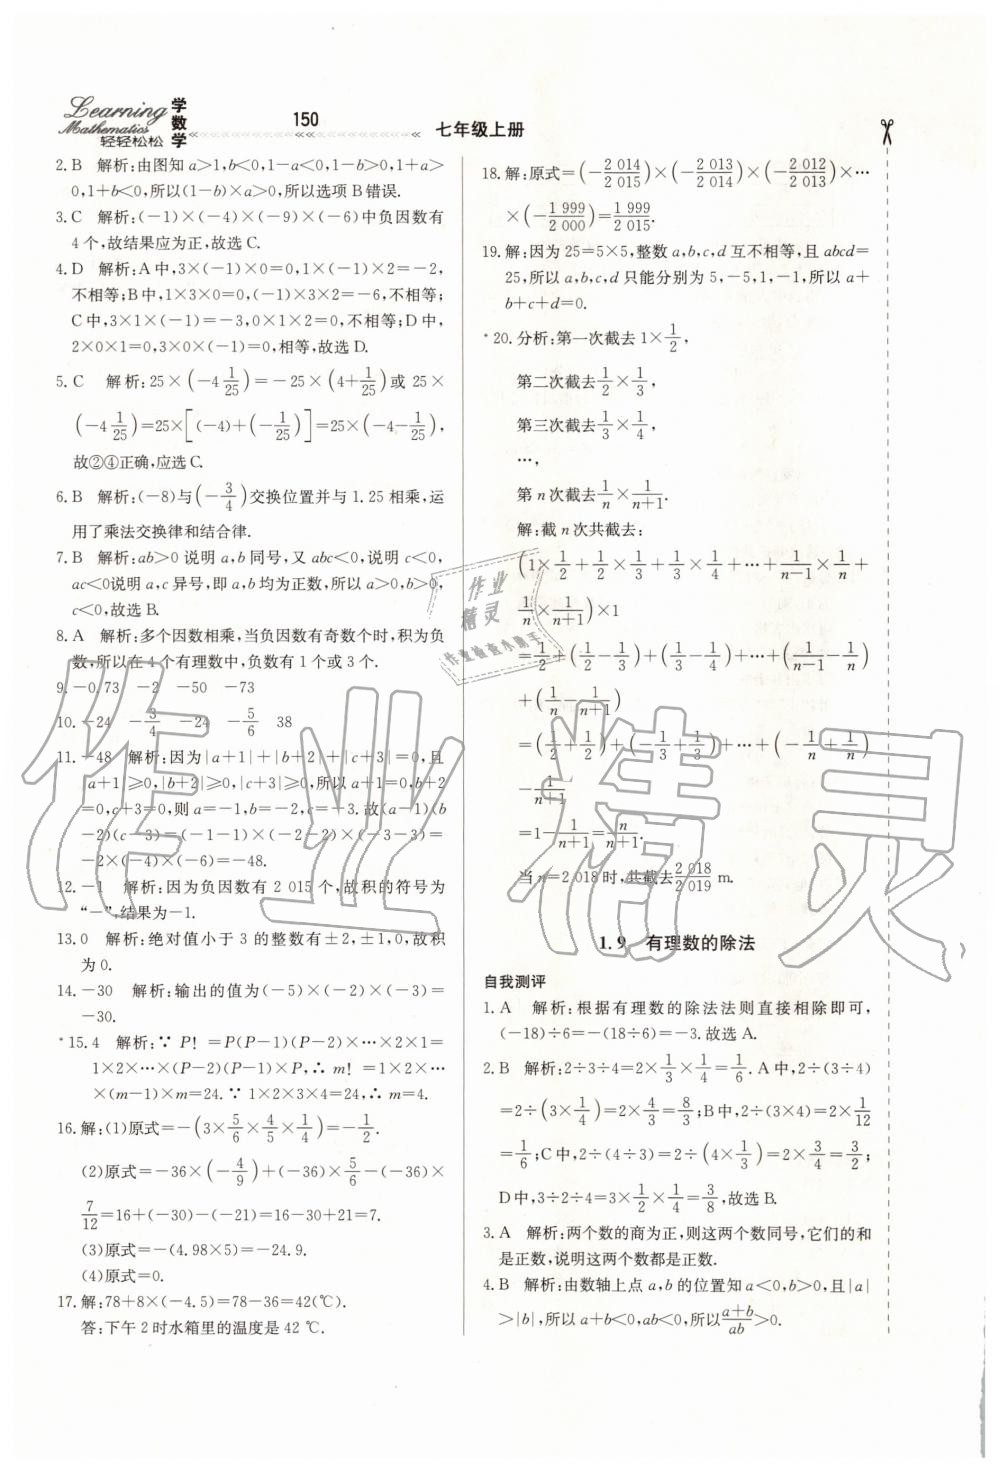 Learning
Mathematics
轻轻松松
学数学
150
七年级上册
2. B 解析:由图知 a>1,b<0,1-a<0,1-b>0,1+a>
0,1+b<0,所以(1-b)×a>0,所以选项 B 错误.
3. C 解析:(-1)×(-4)×(-9)×(-6)中负因数有
4 个,故结果应为正,故选 C.
4. D 解析:A 中,3×(-1)×0=0,(-1)×1×2=-2,
不相等;B 中,1×3×0=0,(-1)×3×2=-6,不相等;
C 中,3×1×(-1)=-3,0×1×2=0,不相等;D 中,
2×0×1=0,(-1)×3×0=0,相等,故选 D.
5. C 解析:25×(-4 1/25)=-25×(4+1/25)或 25×
(-4 1/25)=25×[(-4)+(-1/25)]=25×(-4-1/25),
故②④正确,应选 C.
6. B 解析:(-8)与(-3/4)交换位置并与 1.25 相乘,运
用了乘法交换律和结合律.
7. B 解析:ab>0 说明 a,b 同号,又 abc<0,说明 c<0,
ac<0说明 a,c 异号,即 a,b 均为正数,所以 a>0,b>0,
c<0,故选 B.
8. A 解析:多个因数相乘,当负因数有奇数个时,积为负
数,所以在 4 个有理数中,负数有 1 个或 3 个.
9. -0.73 -2 -50 -73
10. -24 -3/4 -24 -5/6 38
11. -48 解析:因为|a+1|+|b+2|+|c+3|=0,且
|a+1|≥0,|b+2|≥0,|c+3|≥0,所以 a+1=0,b+2
=0,c+3=0,则 a=-1,b=-2,c=-3.故(a-1)(b
-2)(c-3)=(-1-1)×(-2-2)×(-3-3)=
-2×(-4)×(-6)=-48.
12. -1 解析:因为负因数有 2 015 个,故积的符号为
“-”,结果为-1.
13. 0 解析:绝对值小于 3 的整数有±2,±1,0,故积
为 0.
14. -30 解析:输出的值为(-5)×(-2)×(-3)=
-30.
*15. 4 解析:∵ P! =P(P-1)(P-2)×…×2×1=
1×2×…×(P-2)(P-1)P,∴ m! =1×2×…
×(m-1)×m=24.∵ 1×2×3×4=24,∴ m=4.
16. 解:(1)原式=-(3×5/6×4/5×1/4)=-1/2.
(2)原式=-36×(-4/9)+(-36)×5/6-(-36)×
7/12=16+(-30)-(-21)=16-30+21=7.
(3)原式=-(4.98×5)=-24.9.
(4)原式=0.
17. 解:78+8×(-4.5)=78-36=42(℃).
答:下午 2 时水箱里的温度是 42 ℃.
18. 解:原式=(-2 014/2 015)×(-2 013/2 014)×(-2 012/2 013)×…
×(-1 999/2 000)=1 999/2 015.
19. 解:因为 25=5×5,整数 a,b,c,d 互不相等,且 abcd=
25,所以 a,b,c,d 只能分别为 5,-5,1,-1,所以 a+
b+c+d=0.
*20. 分析:第一次截去 1×1/2,
第二次截去1/2×1/3,
第三次截去1/3×1/4,
…,
第 n 次截去1/n×1/(n+1).
解:截 n 次共截去:
(1×1/2+1/2×1/3+1/3×1/4+…+1/(n-1)×1/n+
1/n×1/(n+1))×1
=1/2+(1/2-1/3)+(1/3-1/4)+…+(1/(n-1)-1/n)
+(1/n-1/(n+1))
=(1/2+1/2)+(-1/3+1/3)+…+(-1/n+1/n)
-1/(n+1)
=1-1/(n+1)=n/(n+1).
当 n=2 018时,共截去2 018/2 019 m.
1.9 有理数的除法
自我测评
1. A 解析:根据有理数的除法法则直接相除即可,
(-18)÷6=-(18÷6)=-3.故选 A.
2. B 解析:2÷3÷4=2×1/3×1/4=1/6.A 中,2÷(3÷4)
=2÷(3×1/4)=2×4/3=8/3;B中,2÷(3×4)=2×1/12
=1/6;C中,2÷(4÷3)=2÷(4×1/3)=2×3/4=3/2;
D中,3÷2÷4=3×1/2×1/4=3/8,故选 B.
3. A 解析:两个数的商为正,则这两个数同号,它们的和
是正数,说明这两个数都是正数.
4. B 解析:由数轴上点 a,b 的位置知 a<0,b>0,且|a|
>|b|,所以 a+b<0,ab<0,所以(a+b)/ab>0.
作业精灵
作业
精灵
作业检查小助手